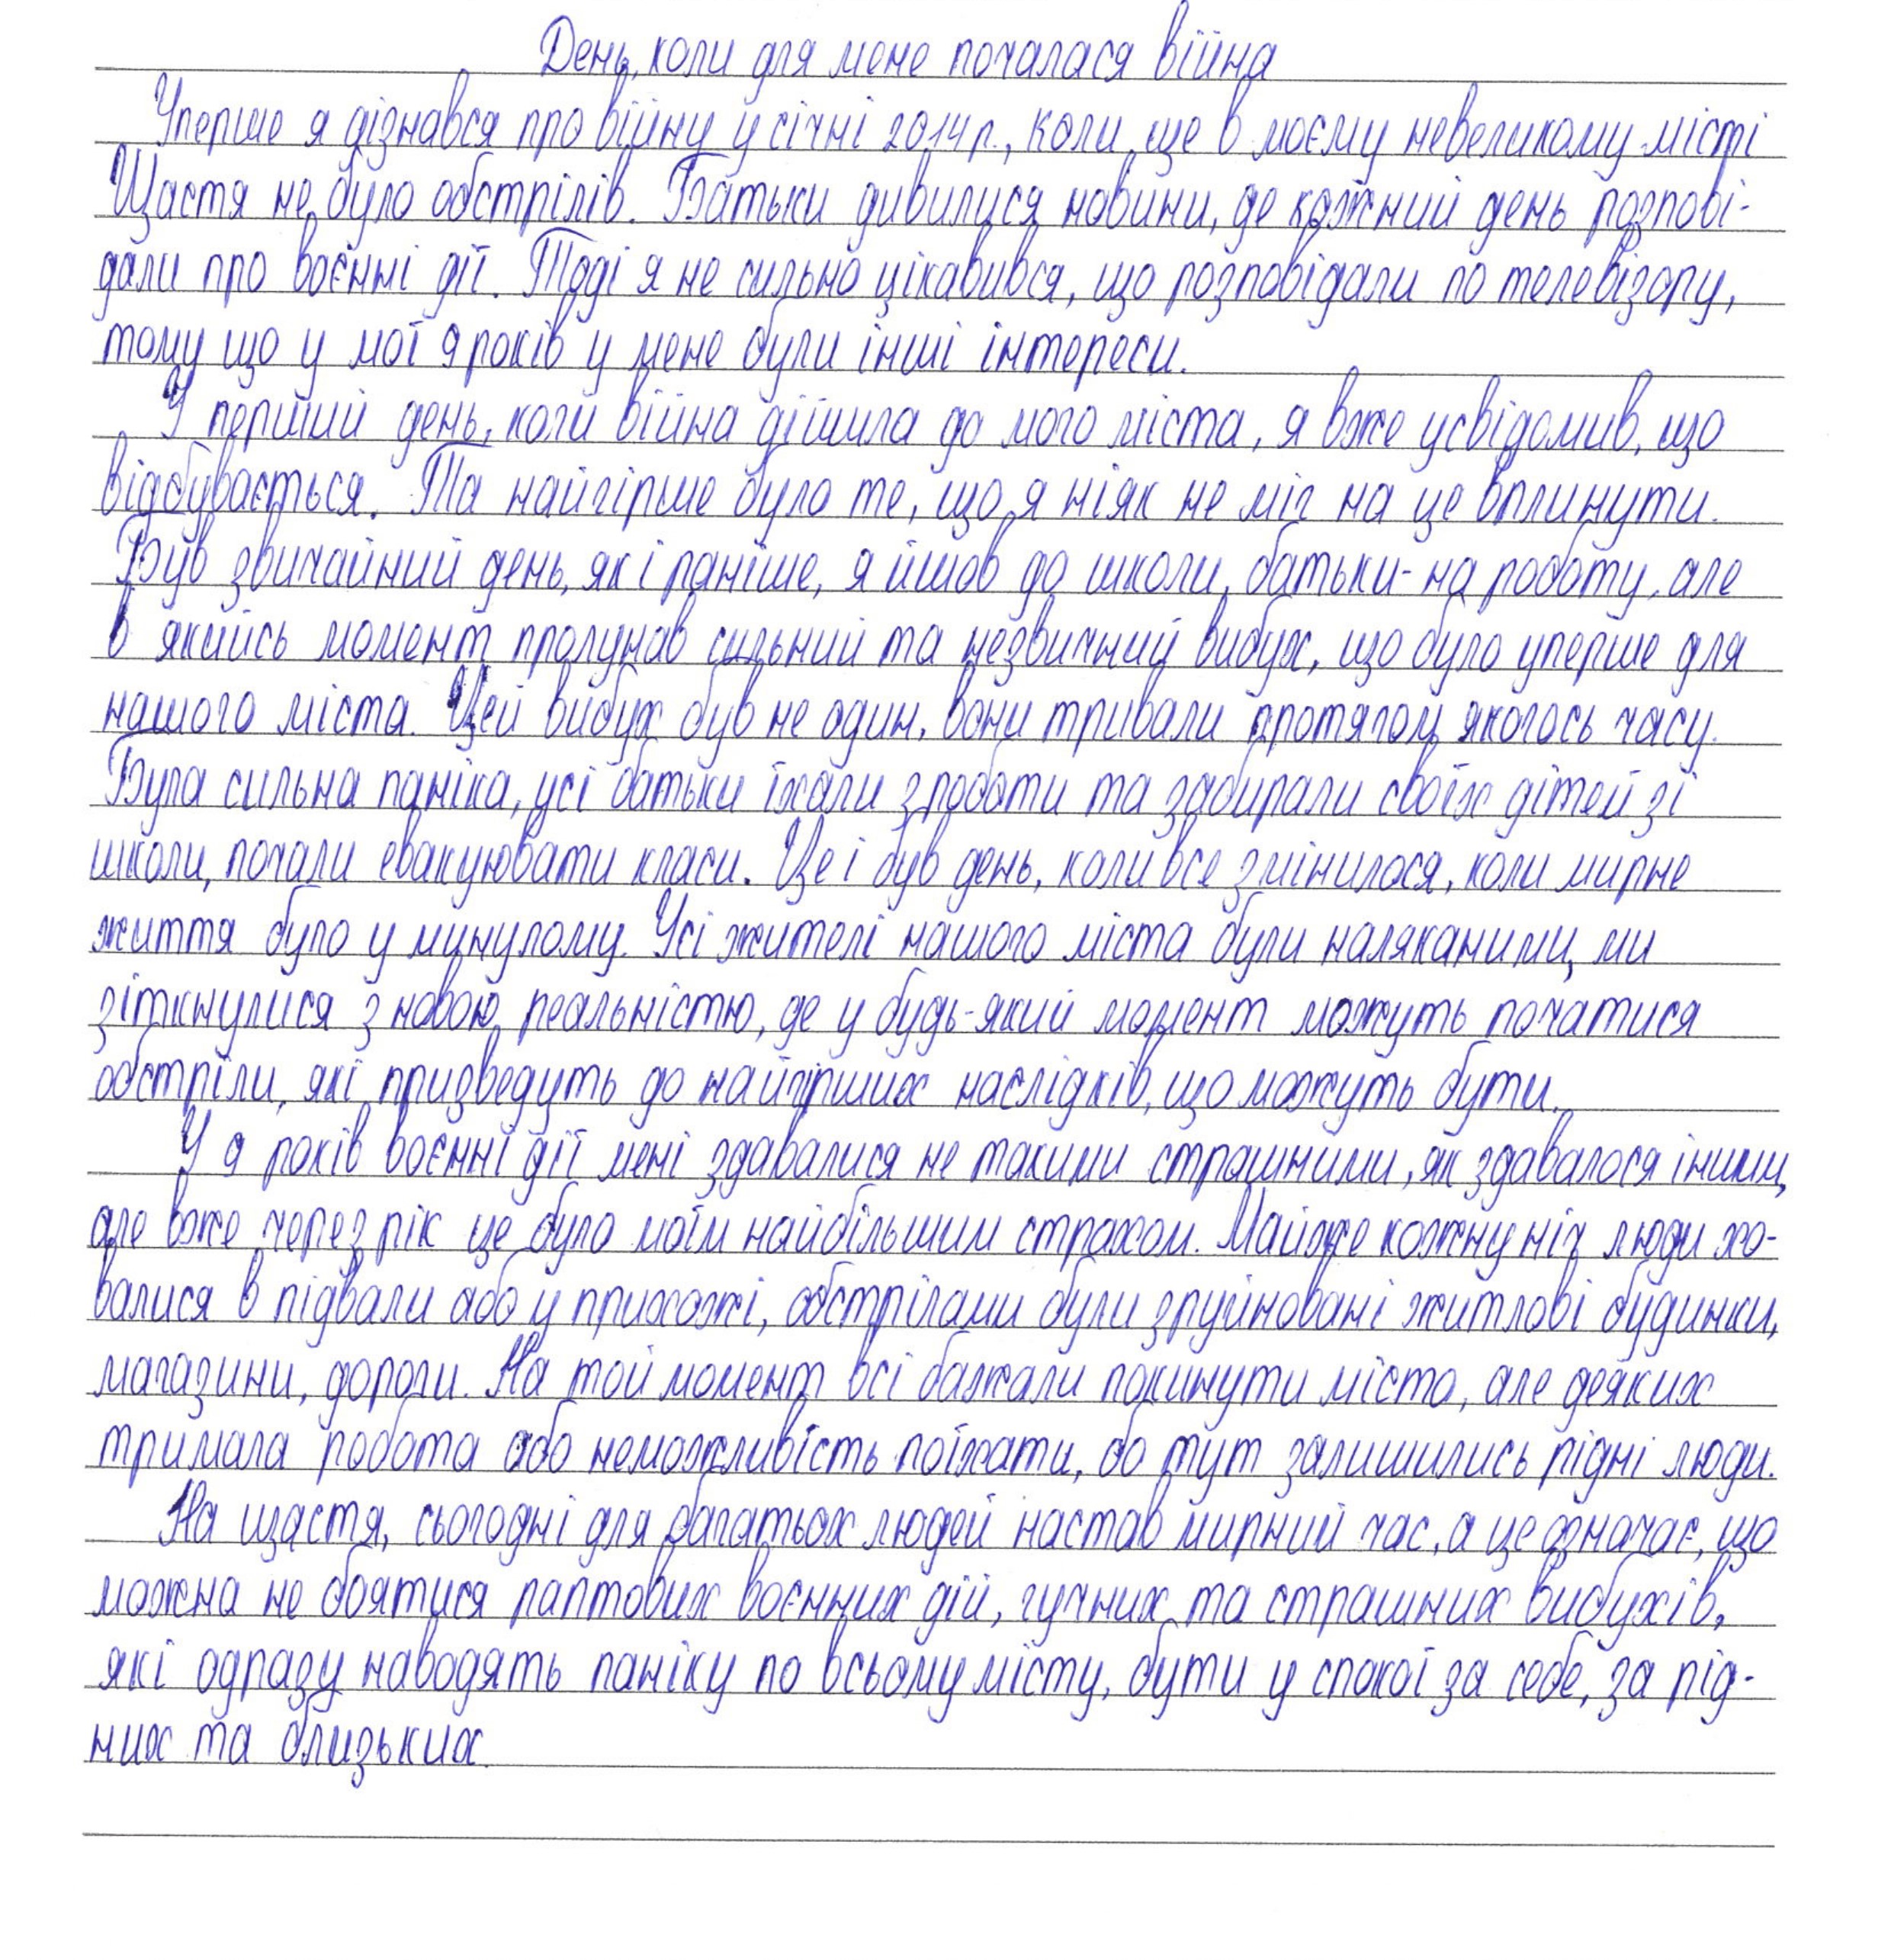 День, коли для мене почалася війна
Уперше я дізнався про війну у січні 2014р., коли ще в моєму невеликому місті
Щастя не було обстрілів. Батьки дивилися новини, де кожний день розпові-
дали про воєнні дії. Тоді я не сильно цікавився, що розповідали по телевізору,
тому що у мої 9 років у мене були інші інтереси.
У перший день, коли війна дійшла до мого міста, я вже усвідомив, що
відбувається. Та найгірше було те, що я ніяк не міг на це вплинути.
Був звичайний день, як і раніше, я йшов до школи, батьки - на роботу, але
в якийсь момент пролунав сильний та незвичний вибух, що було уперше для
нашого міста. Цей вибух був не один, вони тривали протягом якогось часу.
Була сильна паніка, усі батьки їхали з роботи та забирали своїх дітей зі
школи, почали евакуювати класи. Це і був день, коли все змінилося, коли мирне
життя було у минулому. Усі жителі нашого міста були наляканими, ми
зіткнулися з новою реальністю, де у будь-який момент можуть початися
обстріли, які призведуть до найгірших наслідків, що можуть бути.
У 9 років воєнні дії мені здавалися не такими страшними, як здавалося іншим,
але вже через рік це було моїм найбільшим страхом. Майже кожну ніч люди хо-
валися в підвали або у прихожі, обстрілами були зруйновані житлові будинки,
магазини, дороги. На той момент всі бажали покинути місто, але деяких
тримала робота або неможливість поїхати, бо тут залишились рідні люди.
На щастя, сьогодні для багатьох людей настав мирний час, а це означає, що
можна не боятися раптових воєнних дій, гучних та страшних вибухів,
які одразу наводять паніку по всьому місту, бути у спокої за себе, за рід-
них та близьких.